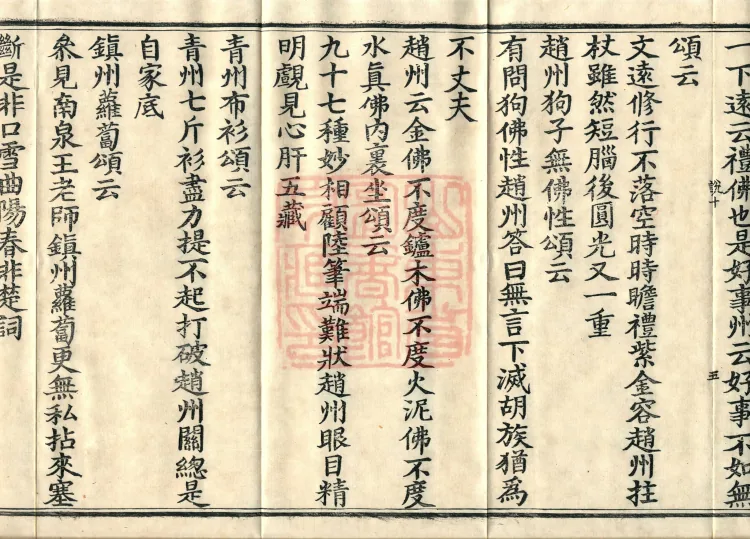 一下遠云禮佛也是好事州云好事不如無
頌云
文遠修行不落空時時瞻禮紫金容趙州拄
杖雖然短腦後圓光又一重
趙州狗子無佛性頌云
有問狗佛性趙州答曰無言下滅胡族猶為
不丈夫
趙州云金佛不度鑪木佛不度火泥佛不度
水真佛內裏坐頌云
九十七種妙相顧陸筆端難狀趙州眼目精
明覷見心肝五藏
青州布衫頌云
青州七斤衫盡力提不起打破趙州關總是
自家底
鎮州蘿蔔頌云
叅見南泉王老師鎮州蘿蔔更無私拈來塞
斷是非口雪曲陽春非楚詞